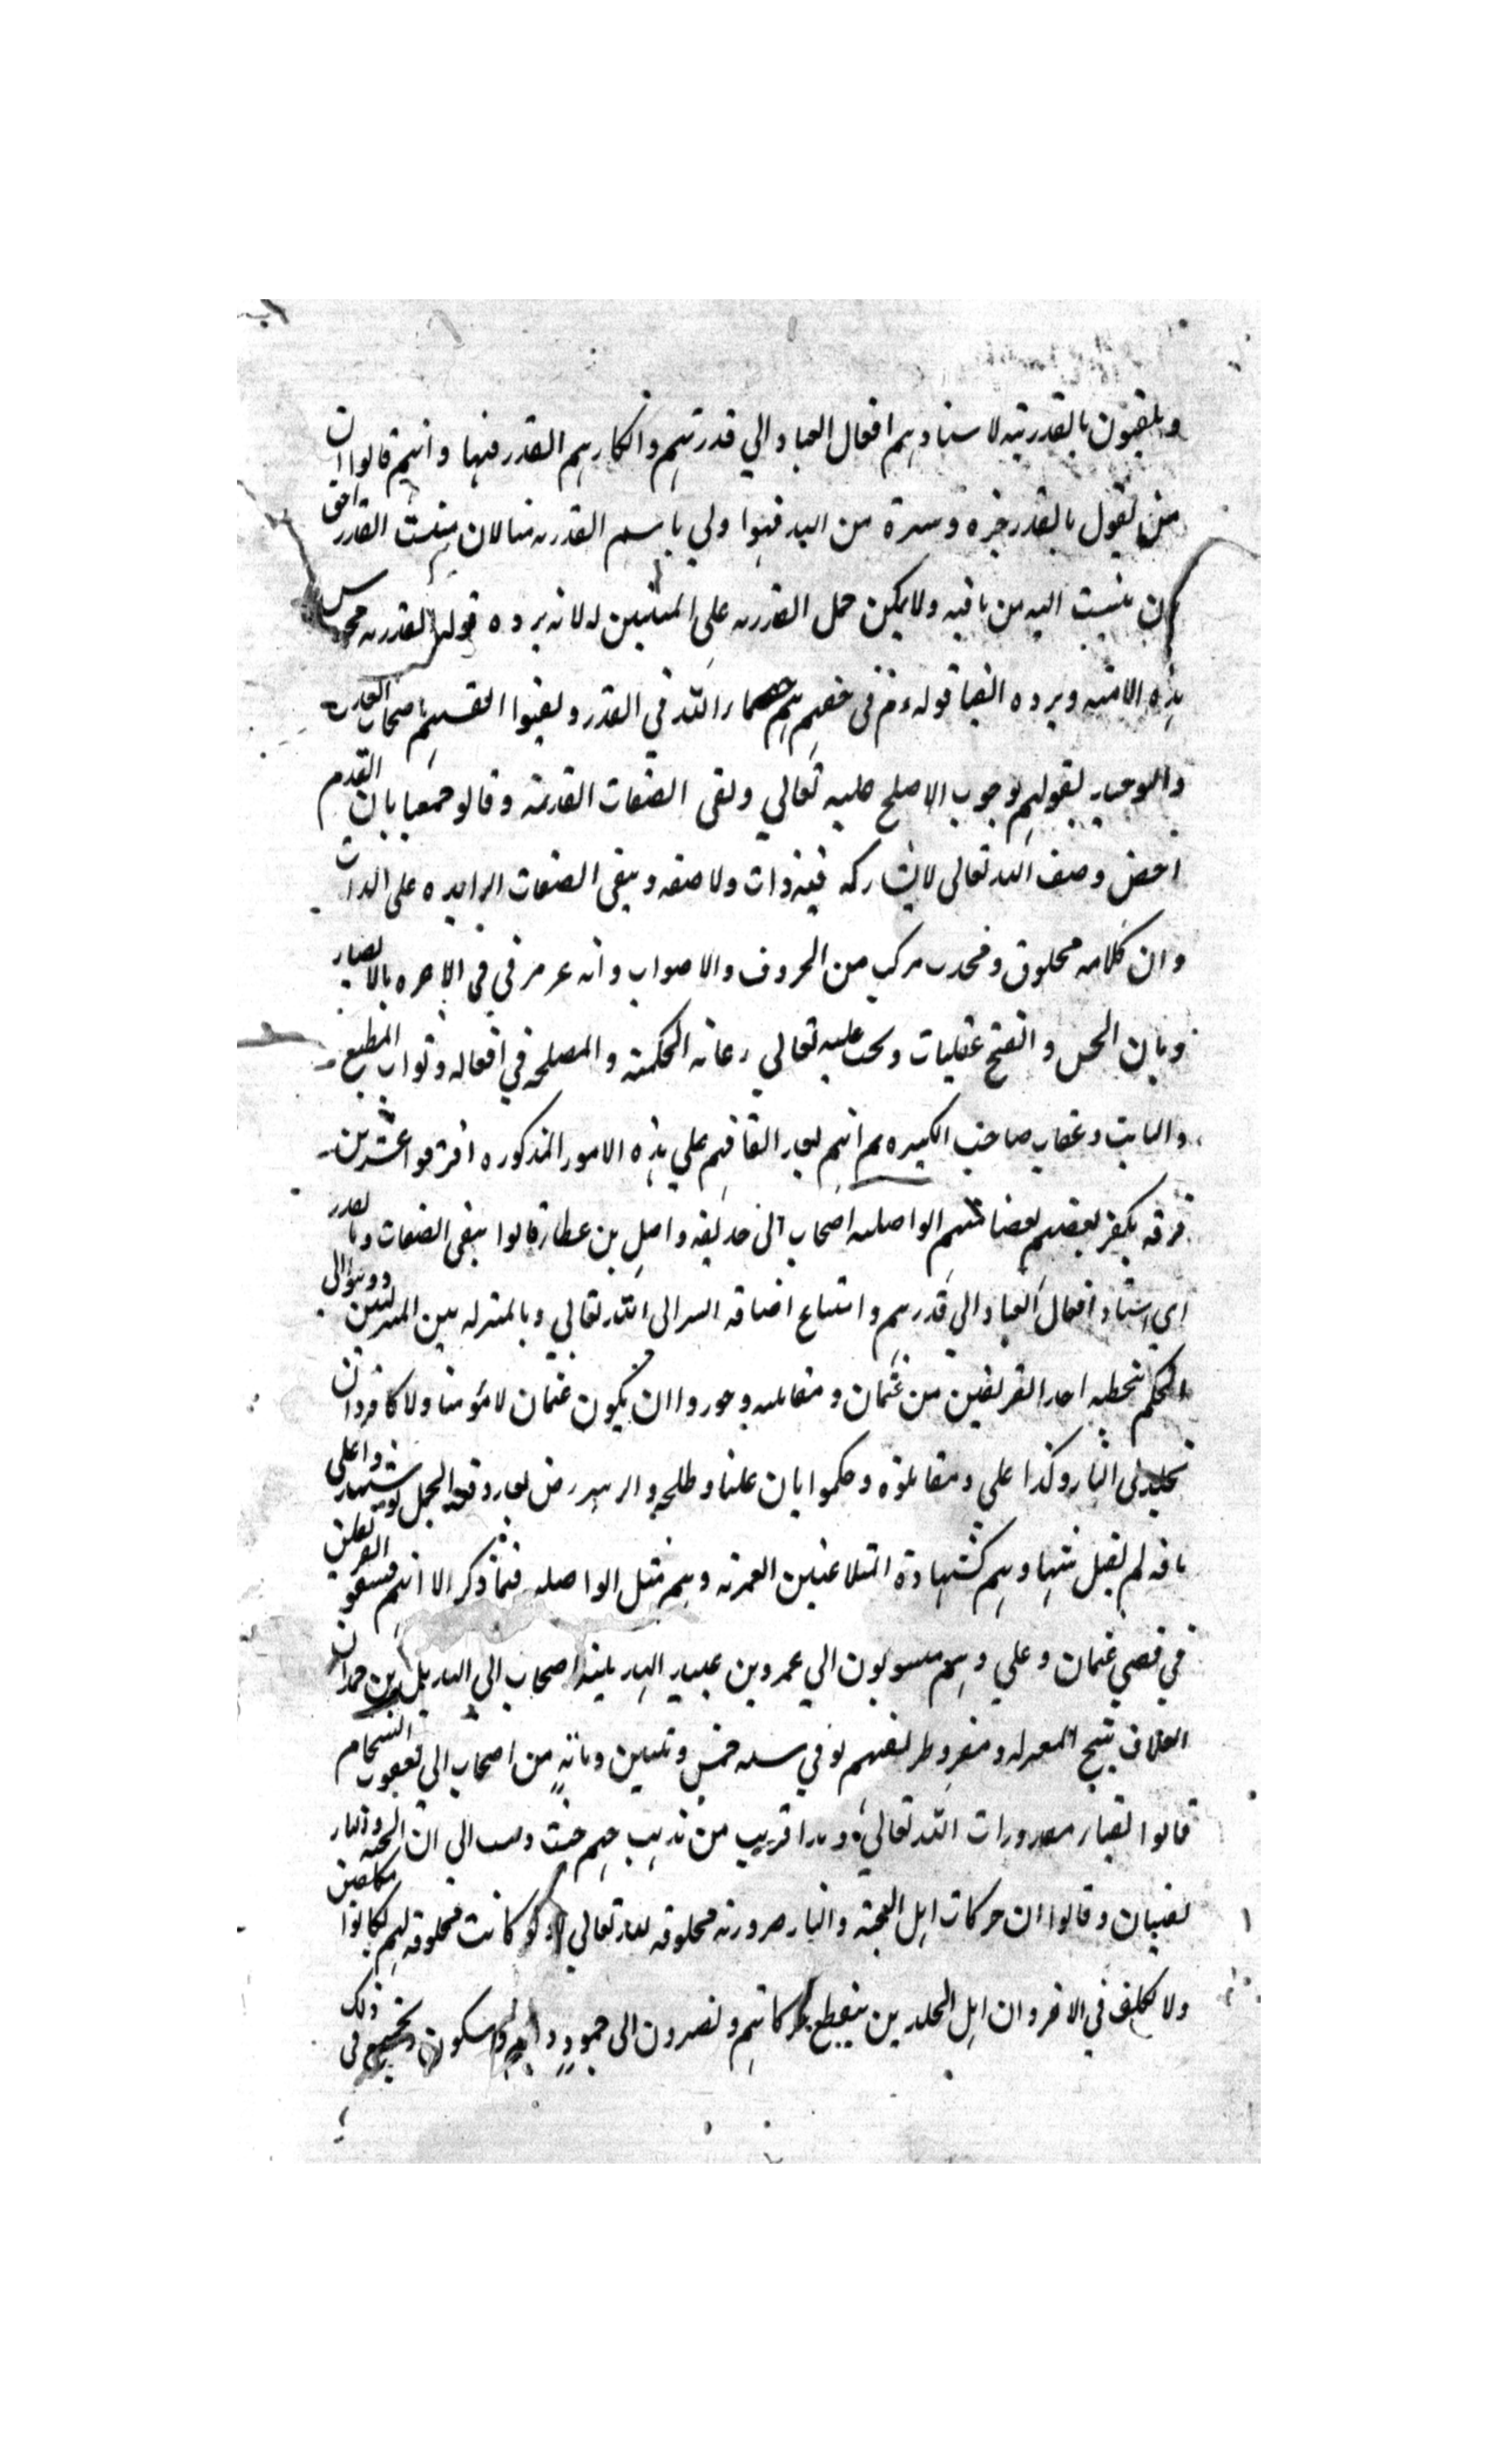 ويلقبون بالقدرية لاسنادهم افعال العباد الي قدرتهم وانكارهم القدر فيها وانهم قالوا ان
من يقول بالقدر خيره وشره من الله فهوا ولي باسم القدريه منا لان مثبت القدر احق
ان ينسب اليه من نافيه ولا يمكن حمل القدريه علي المثبتين له لانه يرده قوله القدريه مجوس
هذه الامته ويرده ايضا قوله في حقهم هم خصماء الله في القدر ولقبوا انفسهم باصحاب العدل
والتوحيد لقولهم بوجوب الاصلح عليه تعالي ونفي الصفات القديمة وقالو جميعا بان القدم
اخص وصف الله تعالى لا يشاركه فيه ذات ولا صفه وبنفي الصفات الزايده على الذات
وان كلامه مخلوق ومحدث مركب من الحروف والاصوات وانه غير مرئي في الاخره بالابصار
وبان الحسن والقبح عقليات ويجب عليه تعالي رعاية الحكمة والمصلحه في افعاله وثواب المطيع
والتايب وعقاب صاحب الكبيره ثم انهم بعد اتفاقهم علي هذه الامور المذكوره افترقوا عشرين
فرقه يكفر بعضهم بعضا منهم الواصليه اصحاب ابي حذيفه واصل بن عطا قالوا بنفي الصفات وبالقدر
اي اسناد افعال العباد الي قدرهم وامتناع اضافه الشر الى الله تعالي وبالمنزله بين المنزلتين وذهبوا الي
الحكم بتخطيه احد الفريقين من عثمان ومقاتليه وجوزوا ان يكون عثمان لا مؤمنا ولا كافرا وان
يخلد في النار وكذا علي ومقاتلوه وحكموا بان عليا وطلحه والزبير رض بعد وقعة الجمل لو شهدوا علي
باقه لم يقبل شهادتهم كشهادة المتلاعنين العمريه وهم مثل الواصليه فيما ذكر الا انهم فسقوا الفريقين
في قصتي عثمان وعلي وهم منسوبون الي عمرو بن عبيد الهذيليه اصحاب ابي الهذيل بن حمدان
العلاف شيخ المعتزله ومقرر طريقتهم توفي سنه خمس وثلثين ومائة من اصحابه ابي يعقوب الشحام
قالوا بفناء مقدورات الله تعالي وهذا قريب من مذهب جهم حيث ذهب الي ان الجنه والنار
تفنيان وقالوا ان حركات اهل الجنة والنار ضرورية مخلوقه لله تعالي اذ لو كانت مخلوقه لهم لكانوا مكلفين
ولا تكليف في الاخره وان اهل الخلدين ينقطع حركاتهم ويصيرون الى جمود دايم وسكون ويجتمع في ذلك